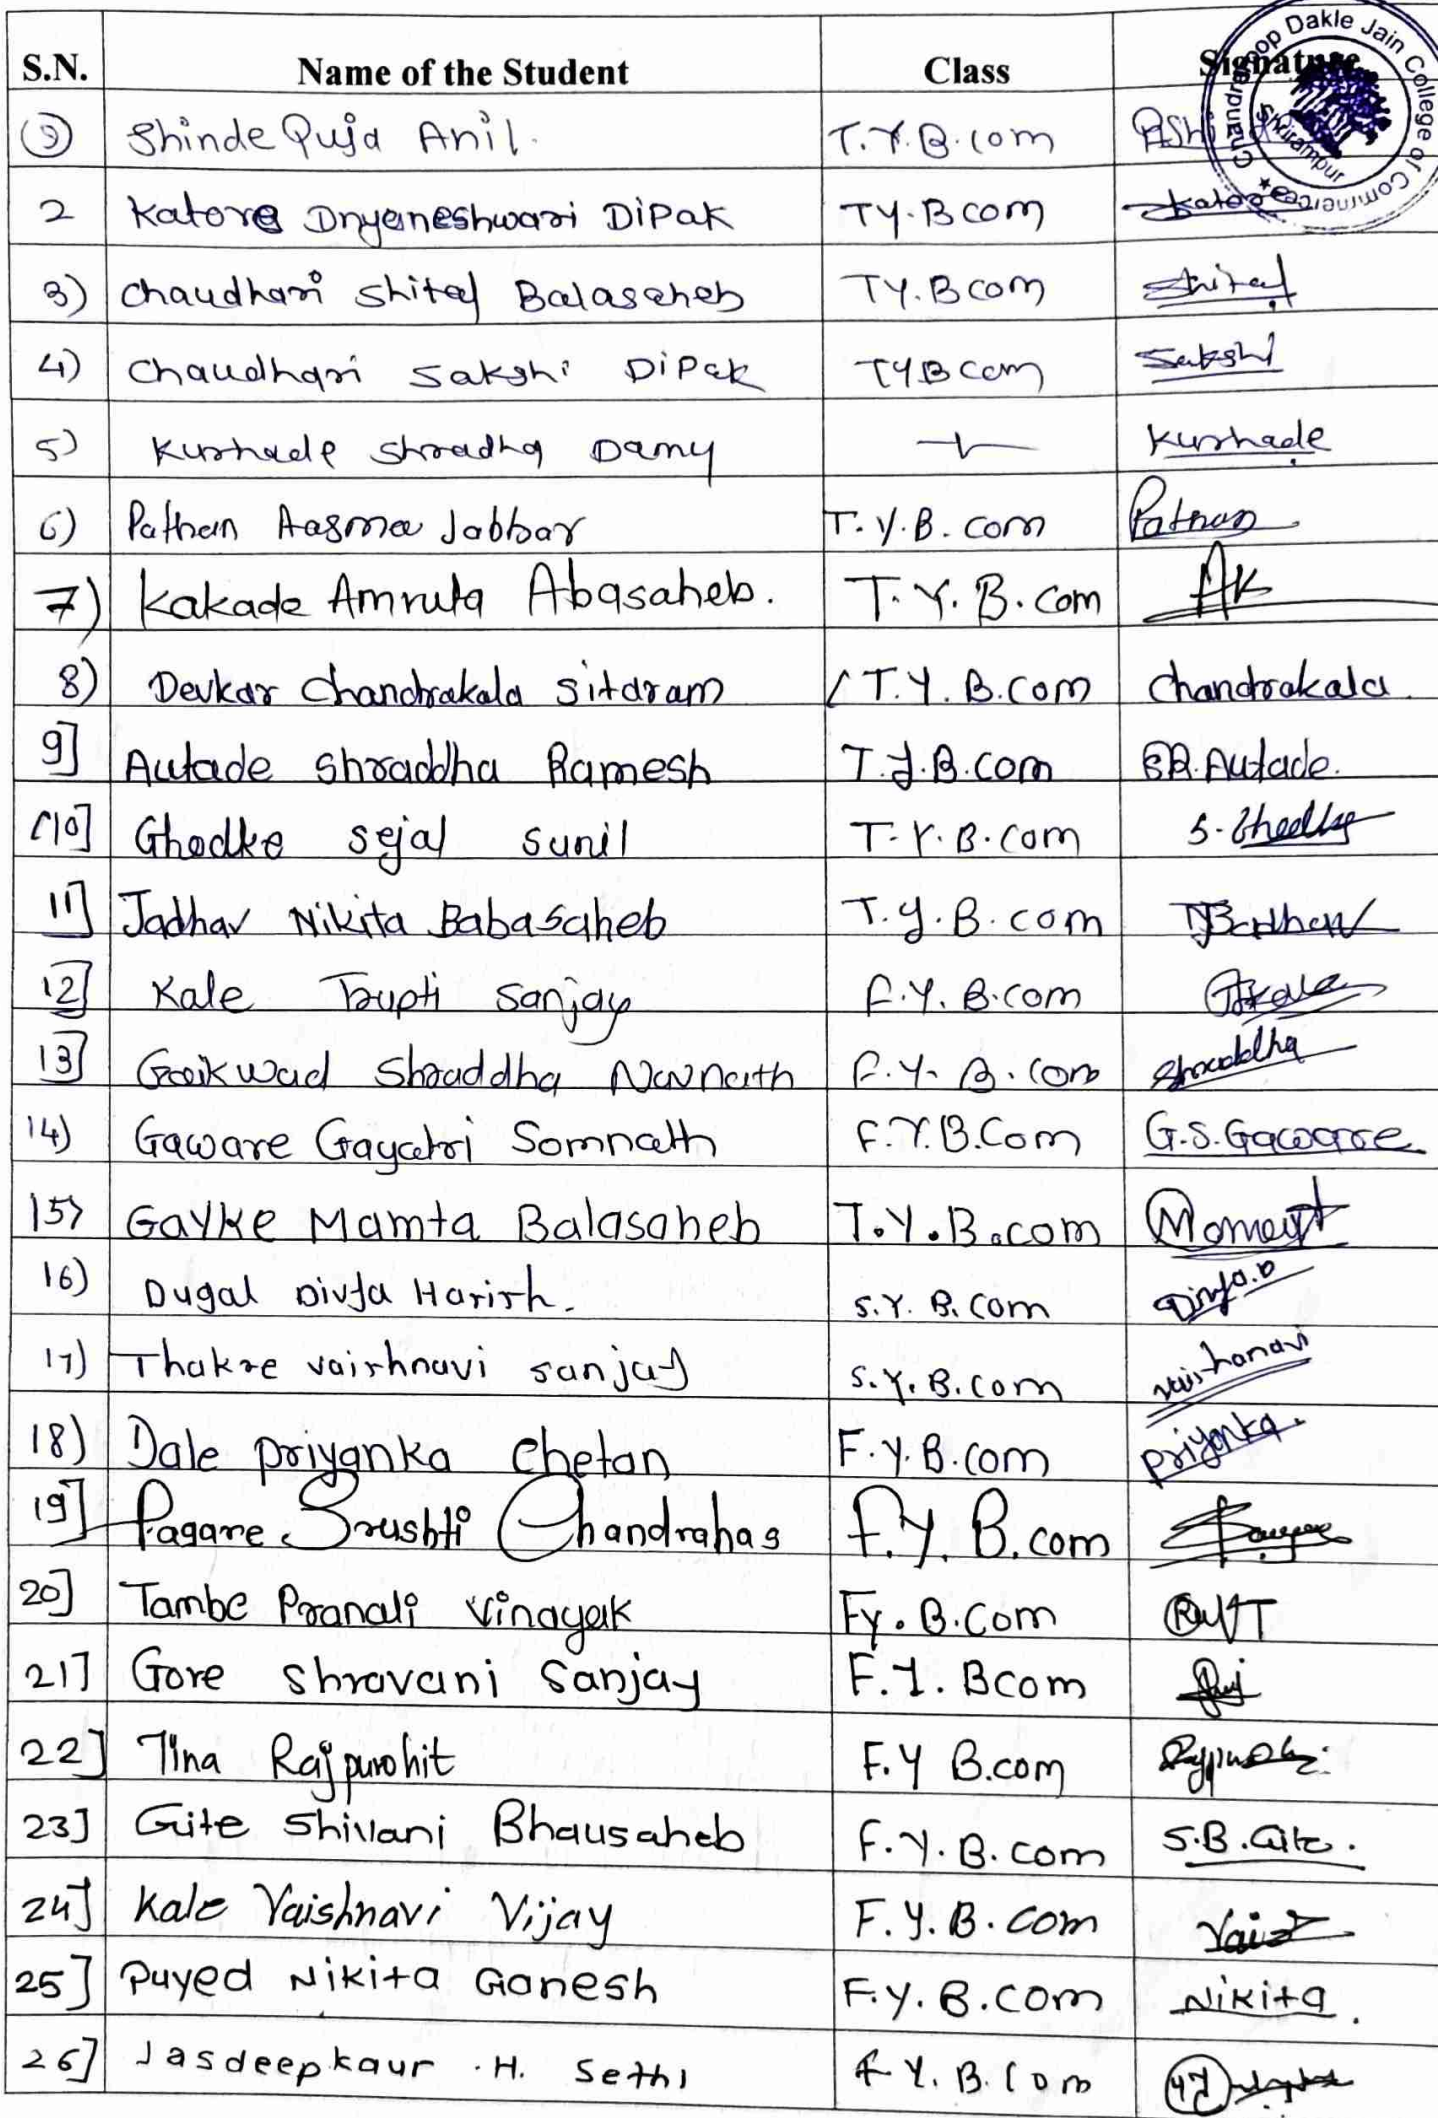 S.N. Name of the Student Class Signature
Chandraroop Dakle Jain College of Commerce Shrirampur
Shinde Puja Anil. T.Y.B.com
2 Katore Dnyaneshwari Dipak TY.Bcom Katore
3) Chaudhari Shital Balasaheb TY.Bcom Shital
4) Chaudhari Sakshi Dipak TYBcom Sakshi
5) Kurhade Shradha Damu Kurhade
6) Pathan Aasma Jabbar T.Y.B.com Pathan
7) Kakade Amruta Abasaheb. T.Y.B.com AK
8) Devkar Chandrakala Sitaram T.Y.B.com Chandrakala.
9] Autade Shraddha Ramesh T.Y.B.com SR.Autade.
10] Ghodke Sejal Sunil T.Y.B.com S.Ghodke
11] Jadhav Nikita Babasaheb T.Y.B.com
12] Kale Trupti Sanjay F.Y.B.com Tkale
13] Gaikwad Shraddha Navnath F.Y.B.com Shraddha
14) Gaware Gayatri Somnath F.Y.B.Com G.S.Gaware
15> Gayke Mamta Balasaheb T.Y.B.com
16) Dugal Divya Harish. S.Y.B.com Divya.D
17) Thakre vaishnavi sanjay S.Y.B.com vaishanavi
18) Dale priyanka chetan F.Y.B.com priyanka.
19] Pagare Srushti Chandrahas F.Y.B.com
20] Tambe Pranali Vinayak Fy.B.Com
21] Gore shravani Sanjay F.Y.Bcom
22] Tina Rajpurohit F.Y B.com
23] Gite Shivani Bhausaheb F.Y.B.com S.B.Gite.
24] Kale Vaishnavi Vijay F.Y.B.com
25] Puyed Nikita Ganesh F.Y.B.com Nikita.
26] Jasdeepkaur .H. Sethi F Y.B.Com